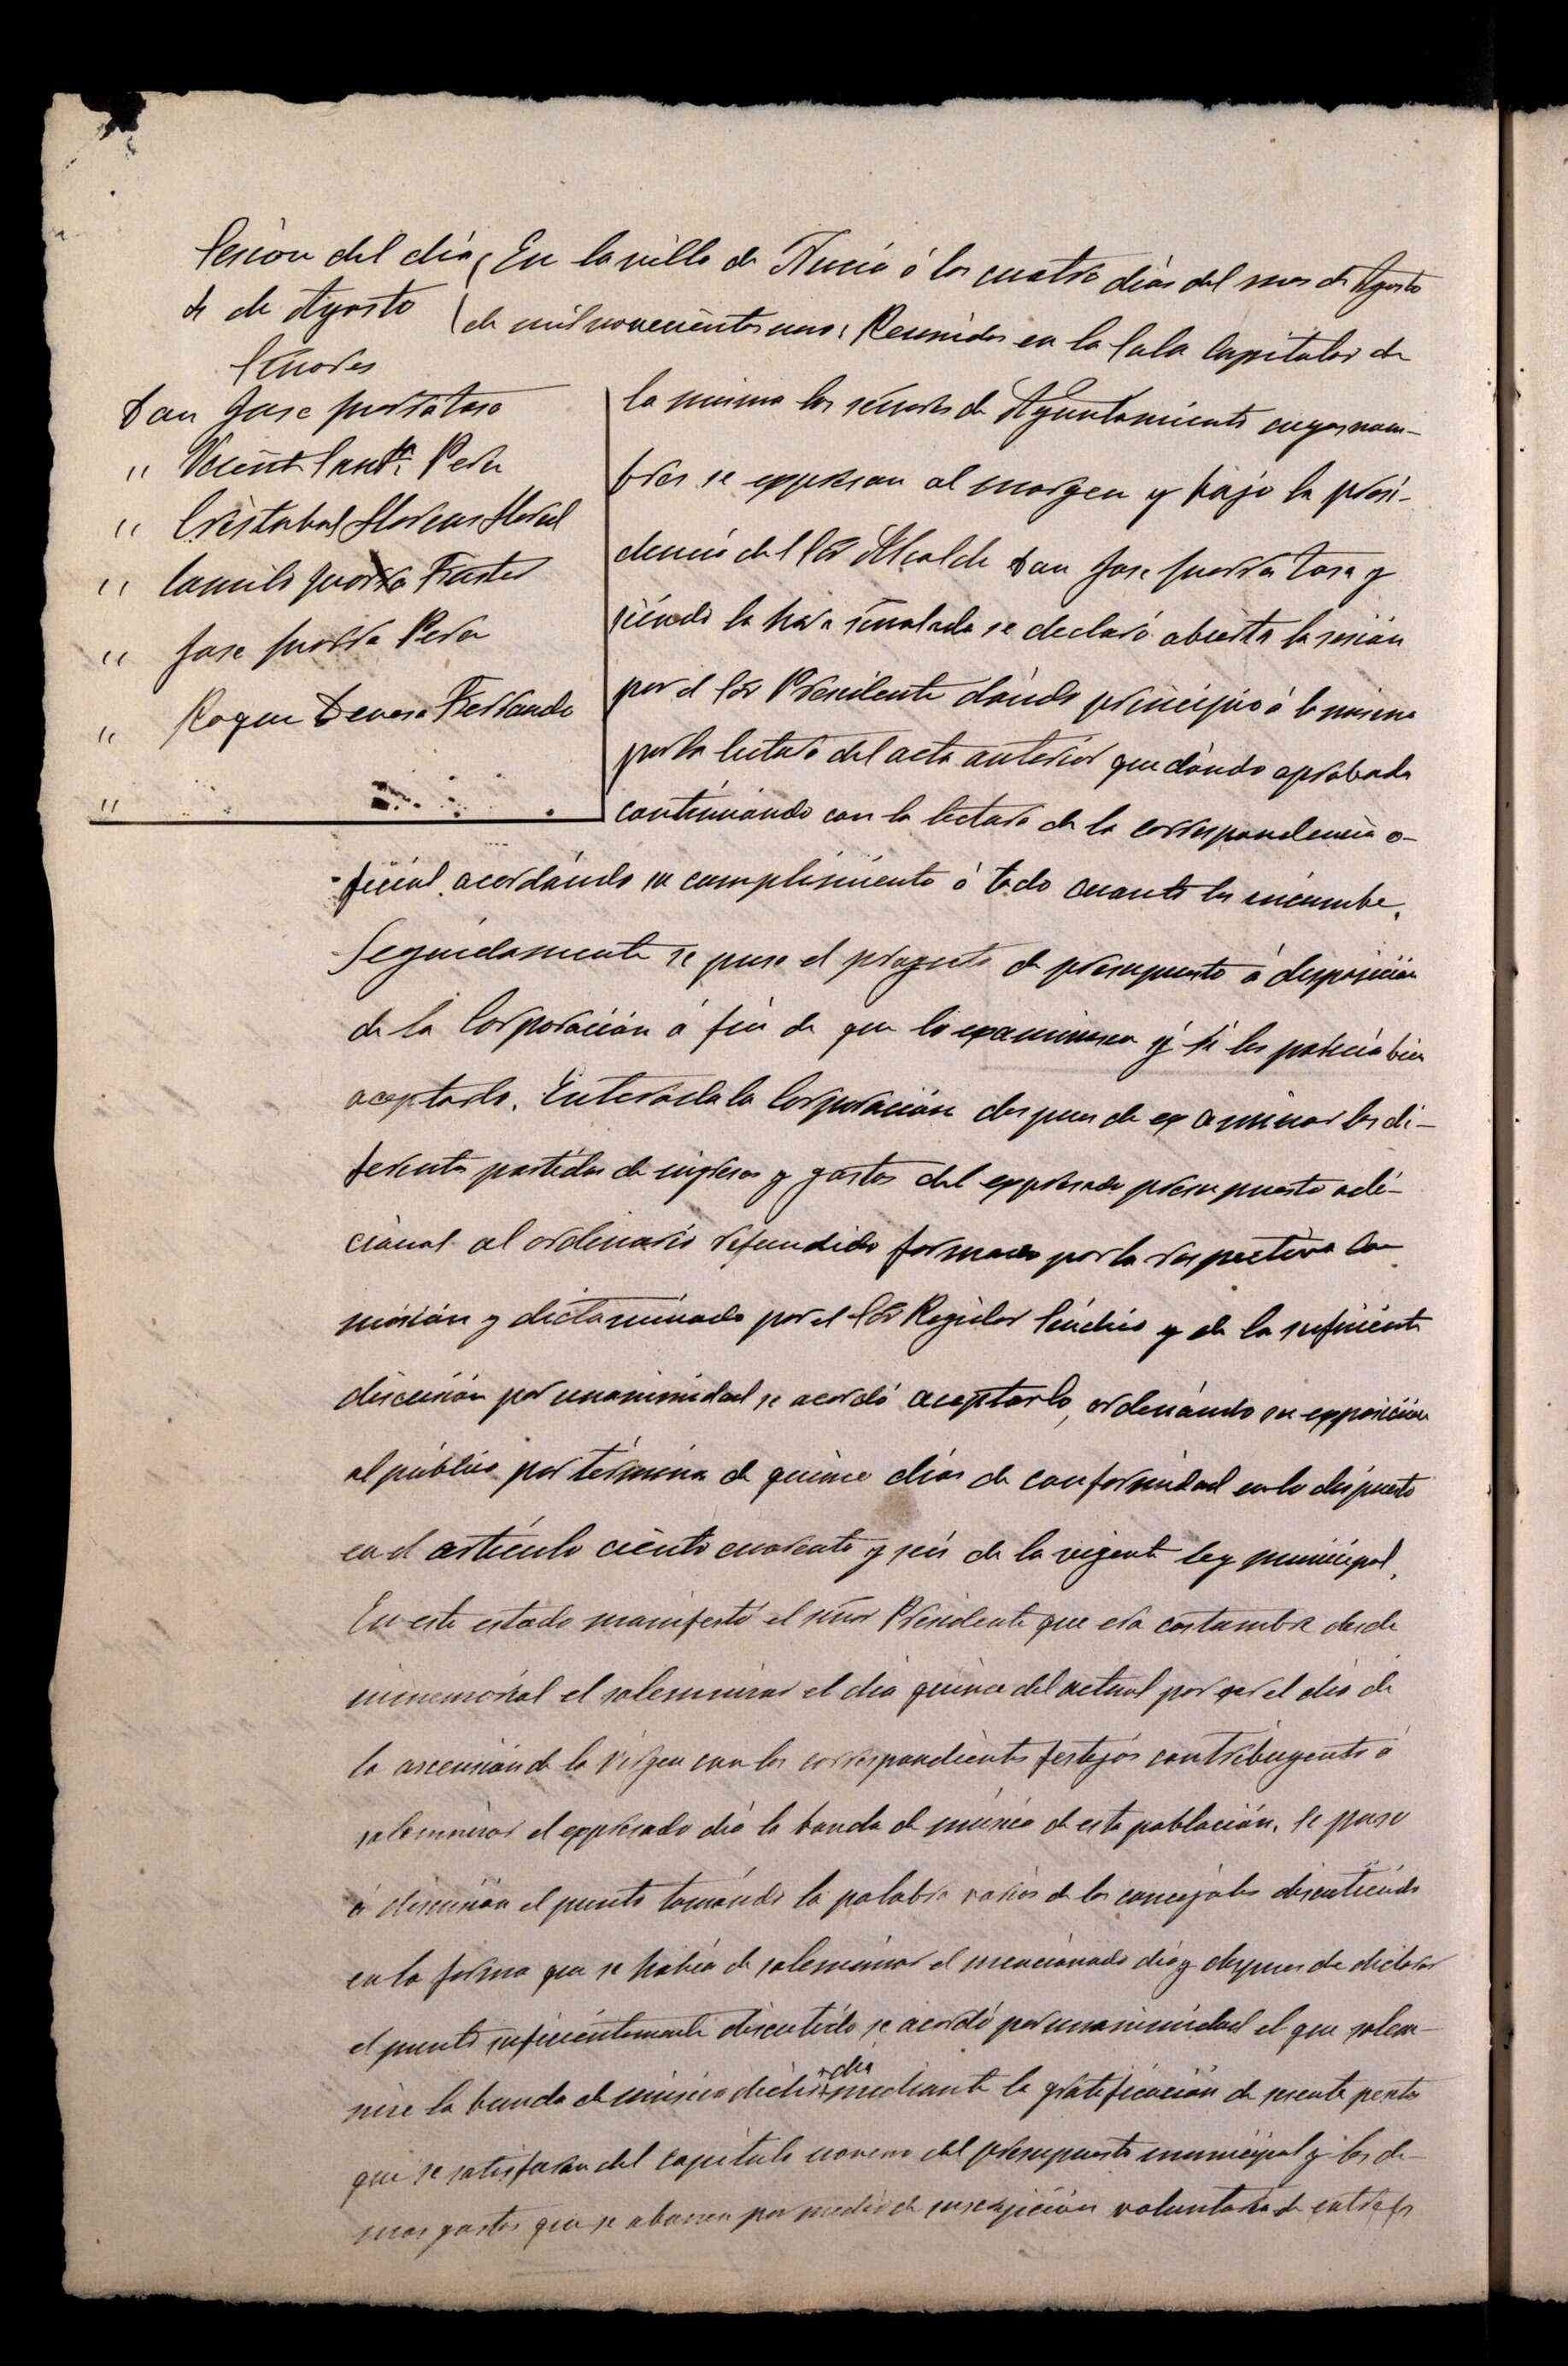 Sesion del día
4 de Agosto
Señores
Don Jose puerto Lara
" Vicente Sant.ª Pera
" Cristobal Llorens Lloret
" Camilo Fuster
" Jose Pera
" Roque Devesa Ferrando
"
En la villa de Nucia á los cuatro días del mes de Agosto
de mil novecientos uno: Reunidos en la Sala Capitular de
la misma los señores de Ayuntamiento cuyos nom-
bres se expresan al margen y bajo la presi-
dencia del Sor Alcalde Don Jose y
siendo la hora señalada se declaró abierta la sesión
por el Sor Presidente dándo principio á la misma
por la lectura del acta anterior quedándo aprobada
contínuándo con la lectura de la correspondencia o-
ficial acordándo su cumplimiento á todo cuanto les incumbe.
Seguidamente se puso el proyecto de presupuesto á disposición
de la Corporación á fin de que lo examinasen y si les parecía bien
aceptarlo. Enterada la Corporación despues de examinar las di-
ferentes partidas de ingresos y gastos del expresado presupuesto adi-
cional al ordinario refundido formado por la respectiva Co-
misión y dictaminado por el Sor Regidor Síndico y de la suficiente
discusión por unanimidad se acordó aceptarlo, ordenándo su exposición
al público por término de quince días de conformidad en lo dispuesto
en el artículo ciento cuarenta y seis de la vigente ley municipal.
En este estado manifestó el señor Presidente que era costumbre desde
inmemorial el solemnizar el día quince del actual por ser el día de
la ascensión de la Virgen con los correspondientes festejos contribuyente á
solemnizar el expresado día la banda de música de esta población. Se puso
á discusión el punto tomándo la palabra varios de los concejales discutiéndo
en la forma que se había de solemnizar el mencionado día y despues de declarar
el punto suficientemente discutido se acordó por unanimidad el que solem-
nise la banda de música dicho día mediante la gratificación de sesenta pesetas
que se satisfarán del capítulo noveno del presupuesto municipal y los de-
mas gastos que se abonen por medio de suscripción voluntaria de entre los